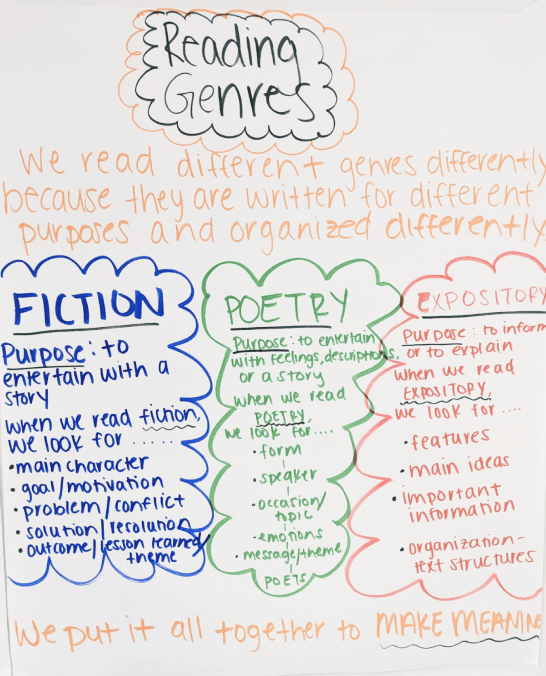 Reading
Genres
We read different genres differently
because they are written for different
purposes and organized differently
FICTION
Purpose: to
entertain with a
story
when we read fiction,
we look for ......
• main character
• goal/motivation
• problem/conflict
• solution/resolution
• outcome/lesson learned/
theme
POETRY
Purpose: to entertain
with feelings, descriptions,
or a story
when we read
POETRY,
we look for....
• form
• speaker
• occasion/
topic
• emotions
• message/theme
POETS
EXPOSITORY
Purpose: to inform
or to explain
when we read
EXPOSITORY,
we look for ....
• features
• main ideas
• important
information
• organization-
text structures
We put it all together to MAKE MEANING